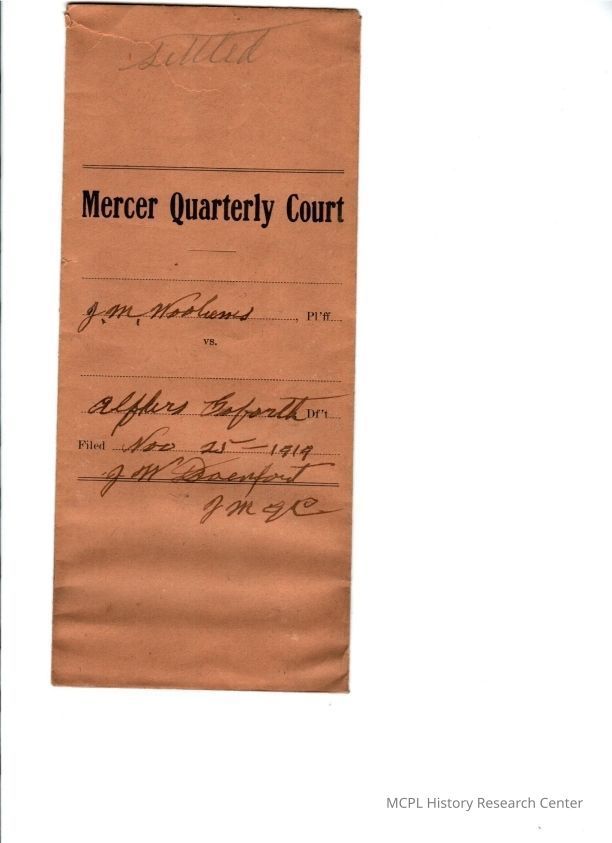 Settled
Mercer Quarterly Court
J. M. Woolums, Pl'ff.
vs.
Goforth Df't
Filed Nov 25 – 1919
J W Davenport
J M Q C
MCPL History Research Center